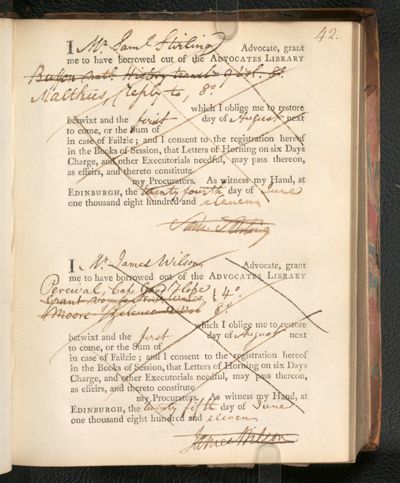 42.
I Mr. Saml Stirling Advocate, grant
me to have borrowed out of the ADVOCATES LIBRARY
Buffon nath History 9 vol. 8o.
Malthus, (reply to, 8o.
which I oblige me to restore
betwixt and the first day of August next
to come, or the Sum of
in case of Failzie; and I consent to the registration hereof
in the Books of Session, that Letters of Horning on six Days
Charge, and other Executorials needful, may pass thereon,
as effeirs, and thereto constitute
my Procurators. As witness my Hand, at
EDINBURGH, the twenty fourth day of June
one thousand eight hundred and eleven
Stirling
I Mr. James Wilson Advocate, grant
me to have borrowed out of the ADVOCATES LIBRARY
Percival, Cape Good Hope
Grant 4o
Moore 2 vol 8o.
which I oblige me to restore
betwixt and the first day of August next
to come, or the Sum of
in case of Failzie; and I consent to the registration hereof
in the Books of Session, that Letters of Horning on six Days
Charge, and other Executorials needful, may pass thereon,
as effeirs, and thereto constitute
my Procurators. As witness my Hand, at
EDINBURGH, the twenty fifth day of June
one thousand eight hundred and eleven
James Wilson